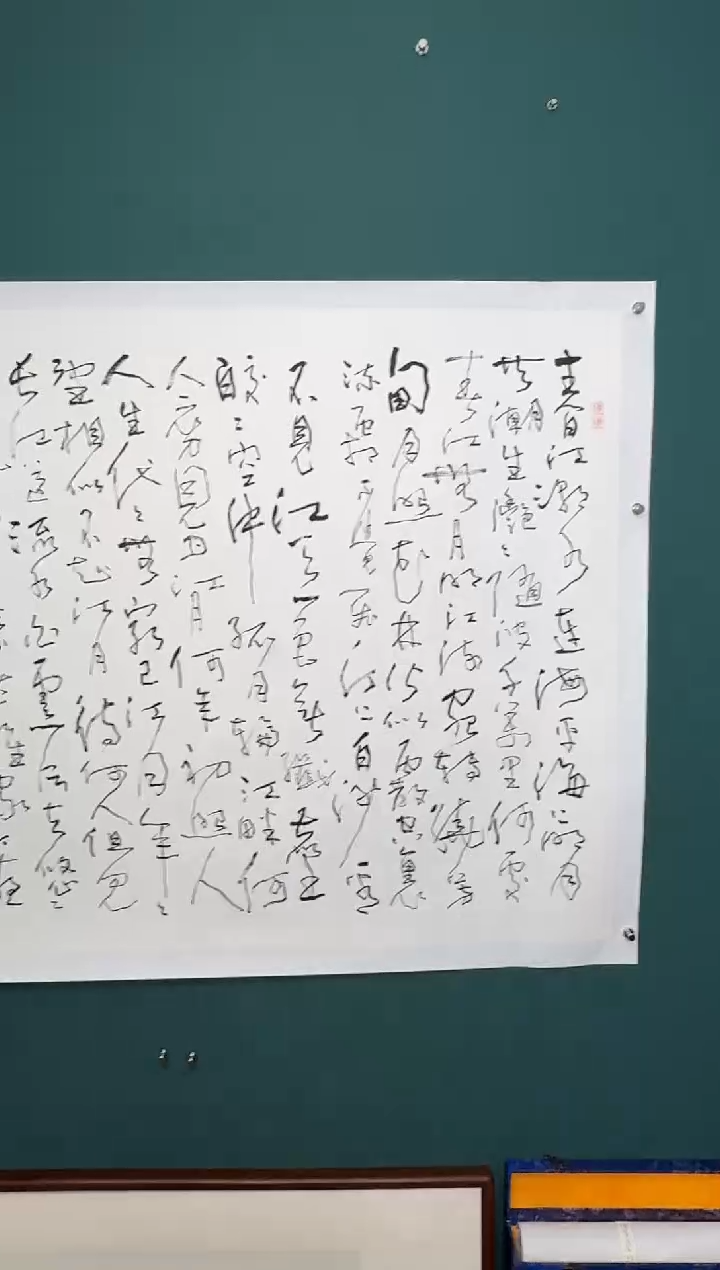 春江潮水連海平海上明月
共潮生灩灩隨波千萬里何處
春江無月明江流宛轉繞芳
甸月照花林皆似霰空裏
流霜不覺飛汀上白沙看
不見江天一色無纖塵
皎皎空中孤月輪江畔何
人初見月江月何年初照人
人生代代無窮已江月年年
望相似不知江月待何人但見
長江送流水白雲一片去悠悠